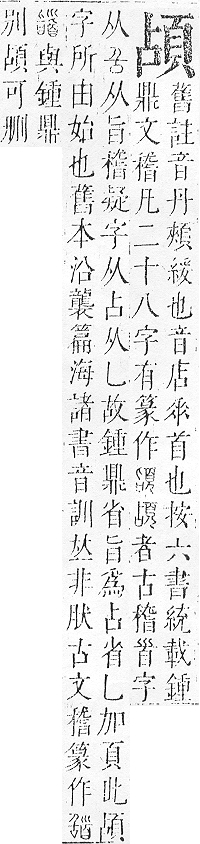 䪴舊註音丹頰緩也音店𠂹首也按六書統載鍾
鼎文稽凡二十八字有篆作䪴者古稽𩠐字
从从旨稽疑字从占从乚故鍾鼎省旨爲占省乚加頁此䪴
字所由始也舊本沿襲篇海諸書音訓𠀤非肰古文稽篆作
與鍾鼎
別䪴可刪